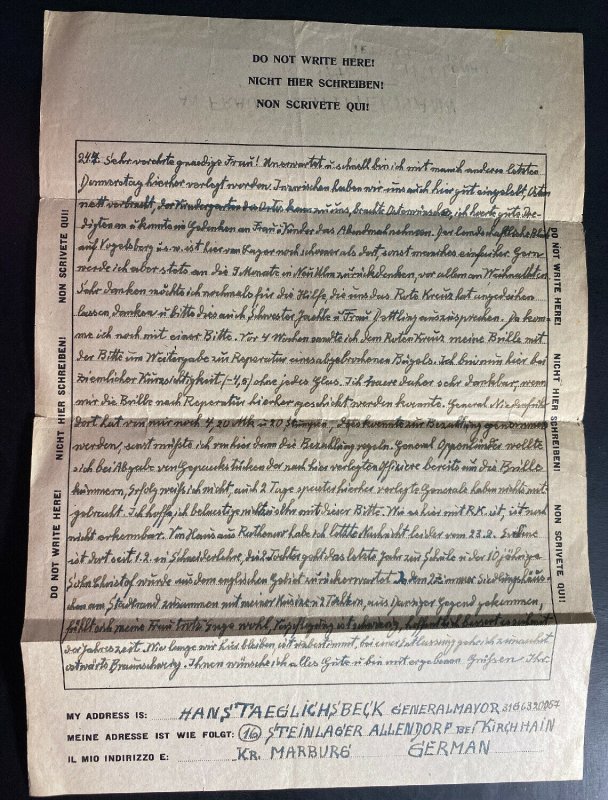 DO NOT WRITE HERE!
NICHT HIER SCHREIBEN!
NON SCRIVETE QUI!
24.4. Sehr verehrte gnaedige Frau! Unerwartet u. schnell bin ich mit manch anderen letzten
Donnerstag hierher verlegt worden. Inzwischen haben wir uns auch hier gut eingelebt. Ostern
nett verbracht, der Kindergarten des Ortes kam zu uns, brachte Ostereier, ich hoerte gute Pre-
digten u. konnte in Gedanken an Frau u. Kinder das Abendmahl nehmen. Der landschaftliche Blick
auf Vogelsberg u.s.w. ist hier vom Lager noch schoener als dort, sonst manches einfacher. Gern
werde ich aber stets an die 9 Monate in zurückdenken, vor allem an Weihnachten.
Sehr danken möchte ich nochmals für die Hilfe, die uns das Rote Kreuz hat angedeihen
lassen, danken u. bitte dies auch Schwester u. Frau auszusprechen. Da komme
ich noch mit einer Bitte. Vor 4 Wochen sandte ich dem Roten Kreuz meine Brille mit
der Bitte um Weitergabe zur Reparatur eines abgebrochenen Bügels. Ich bin nun hier bei
ziemlicher Kurzsichtigkeit (-4,5) ohne jedes Glas. Ich waere daher sehr dankbar, wenn
mir die Brille nach Reparatur hierher geschickt werden koennte. General
dort hat von mir noch 4,20 Mk u. 20 , das koennte zur Bezahlung genommen
werden, sonst müsste ich von hier dann die Bezahlung regeln. General wollte
sich bei Abgabe von Gepaeckstücken der nach hier verlegten Offiziere bereits um die Brille
kümmern, Erfolg weiß ich nicht, auch 2 Tage spaeter hierher verlegte Generale haben nichts mit-
gebracht. Ich hoffe, ich belaestige nicht zu sehr mit dieser Bitte. Wie es hier mit R.K. ist, ist noch
nicht erkennbar. Von Haus aus habe ich letzte Nachricht leider vom 23.2.
ist dort seit 1.2. in Schneiderlehre, die 2. Tochter geht das letzte Jahr zur Schule u. der 10 jährige
Sohn Christof wurde aus dem englischen Gebiet zurückerwartet. In dem Siedlungshäus-
chen am Stadtrand zusammen mit meiner Kusine u. 2 Töchtern, aus Danziger Gegend gekommen,
fühlt sich meine Frau trotz Enge wohl, Verpflegung ist schwierig, hoffentlich bessert es sich mit
der Jahreszeit. Wie lange wir hier bleiben, ist unbestimmt, bei einer Entlassung gehe ich zunaechst
ostwärts Braunschweig. Ihnen wünsche ich alles Gute u. bin mit ergebenen Grüßen Ihr
NON SCRIVETE QUI!
NICHT HIER SCHREIBEN!
DO NOT WRITE HERE!
DO NOT WRITE HERE!
NICHT HIER SCHREIBEN!
NON SCRIVETE QUI!
MY ADDRESS IS: HANS TAEGLICHSBECK GENERALMAYOR 31G6320057
MEINE ADRESSE IST WIE FOLGT: (16) STEINLAGER ALLENDORF BEI KIRCHHAIN
IL MIO INDIRIZZO E: KR. MARBURG GERMAN